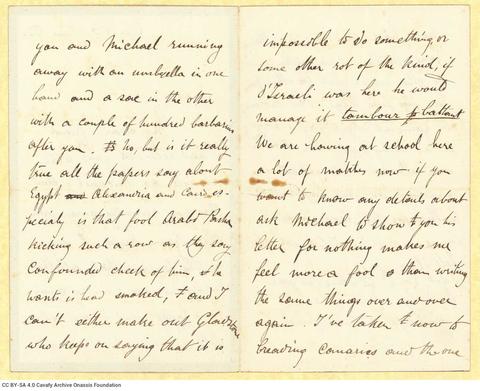 you and Michael running
away with an umbrella in one
hand and a sac in the other
with a couple of hundred barbarians
after you. No, but is it really
true all the papers say about
Egypt and Alexandria and Cairo es-
pecialy is that fool Arabi Pasha
kicking such a row as they say
Confounded cheek of him, he
wants is head smoked, and I
can't either make out Gladstone
who keeps on saying that it is
impossible to do something or
some other rot of the kind, if
D'Israeli was here he would
manage it tambour battant
We are having at school here
a lot of matches now if you
want to know any details about
ask Michael to show to you his
letter for nothing makes me
feel more a fool than writing
the same things over and over
again. I've taken to now to
breading canaries and the one
CC BY-SA 4.0 Cavafy Archive Onassis Foundation